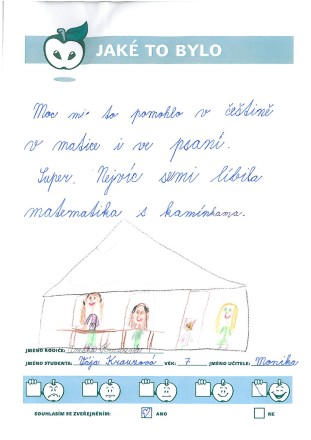 JAKÉ TO BYLO
Moc mi to pomohlo v češtině
v matice i ve psaní.
Super. Nejvíc semi líbila
matematika s kamínkama.
JMÉNO RODIČE:
JMÉNO STUDENTA: Vája Krauzová VĚK: 7 JMÉNO UČITELE: Monika
SOUHLASÍM SE ZVEŘEJNĚNÍM: ANO NE